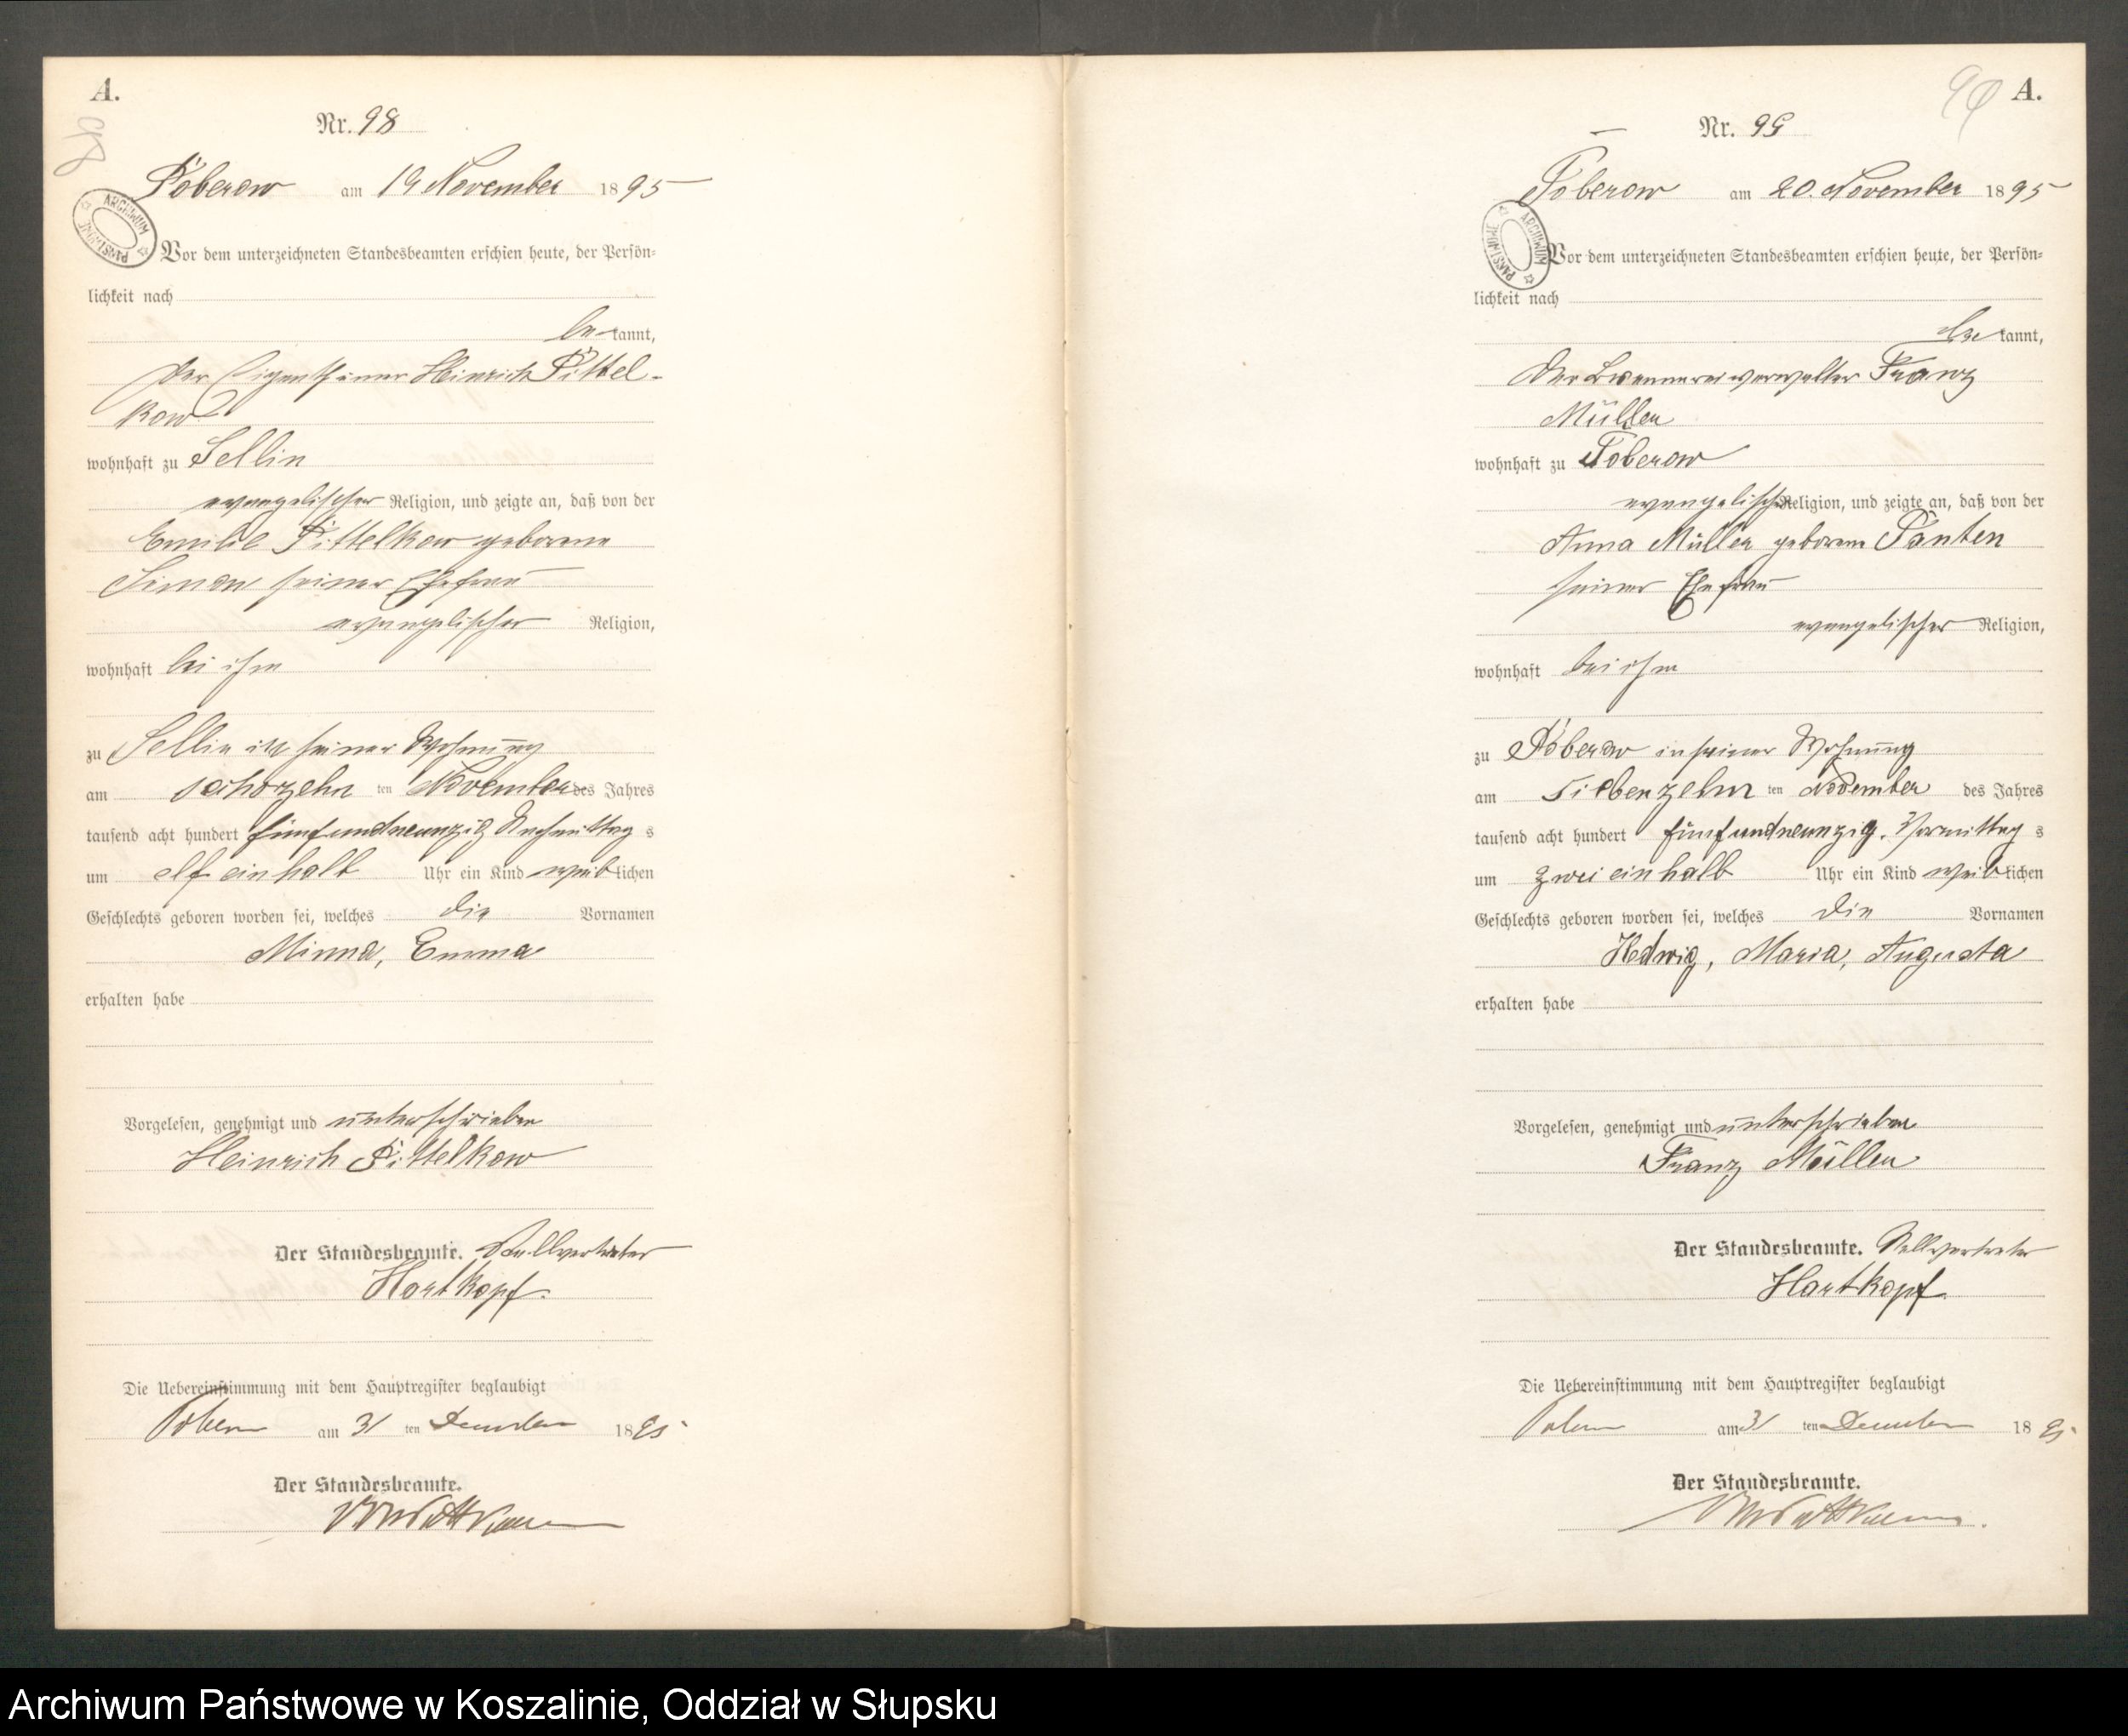 A.
98
Nr. 98
Pöberow am 19 November 1895
ARCHIWUM PAŃSTWOWE
Vor dem unterzeichneten Standesbeamten erschien heute, der Persön-
lichkeit nach
bekannt,
der Eigenthümer Heinrich Pittel-
kow
wohnhaft zu Sellin
evangelischer Religion, und zeigte an, daß von der
Emilie Pittelkow geborene
Simon seiner Ehefrau
evangelischer Religion,
wohnhaft bei ihm
zu Sellin in seiner Wohnung
am sechszehn ten November des Jahres
tausend acht hundert fünfundneunzig Nachmittags
um elf einhalb Uhr ein Kind weiblichen
Geschlechts geboren worden sei, welches die Vornamen
Minna, Emma
erhalten habe
Vorgelesen, genehmigt und unterschrieben
Heinrich Pittelkow
Der Standesbeamte. Stellvertreter
Hartkopf.
Die Uebereinstimmung mit dem Hauptregister beglaubigt
am 31 ten Dezember 1895
Der Standesbeamte.
A.
Nr. 99
Poberow am 20. November 1895
ARCHIWUM PAŃSTWOWE
Vor dem unterzeichneten Standesbeamten erschien heute, der Persön-
lichkeit nach
bekannt,
der Brennereiverwalter Franz
Müller
wohnhaft zu Poberow
evangelischer Religion, und zeigte an, daß von der
Anna Müller geborene Panten
seiner Ehefrau
evangelischer Religion,
wohnhaft bei ihm
zu Pöberow in seiner Wohnung
am siebenzehn ten November des Jahres
tausend acht hundert fünfundneunzig Vormittags
um zwei einhalb Uhr ein Kind weiblichen
Geschlechts geboren worden sei, welches die Vornamen
Hedwig, Maria, Augusta
erhalten habe
Vorgelesen, genehmigt und unterschrieben
Franz Müller
Der Standesbeamte. Stellvertreter
Hartkopf.
Die Uebereinstimmung mit dem Hauptregister beglaubigt
am 31 ten Dezember 1895
Der Standesbeamte.
Archiwum Państwowe w Koszalinie, Oddział w Słupsku